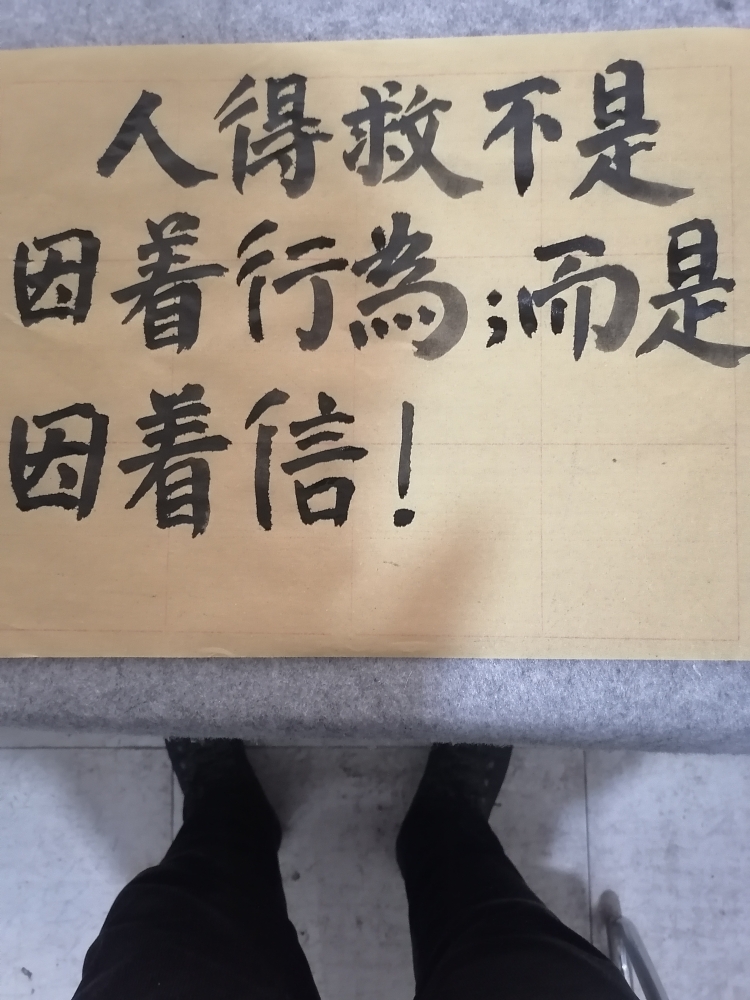 人得救不是
因着行為;而是
因着信!